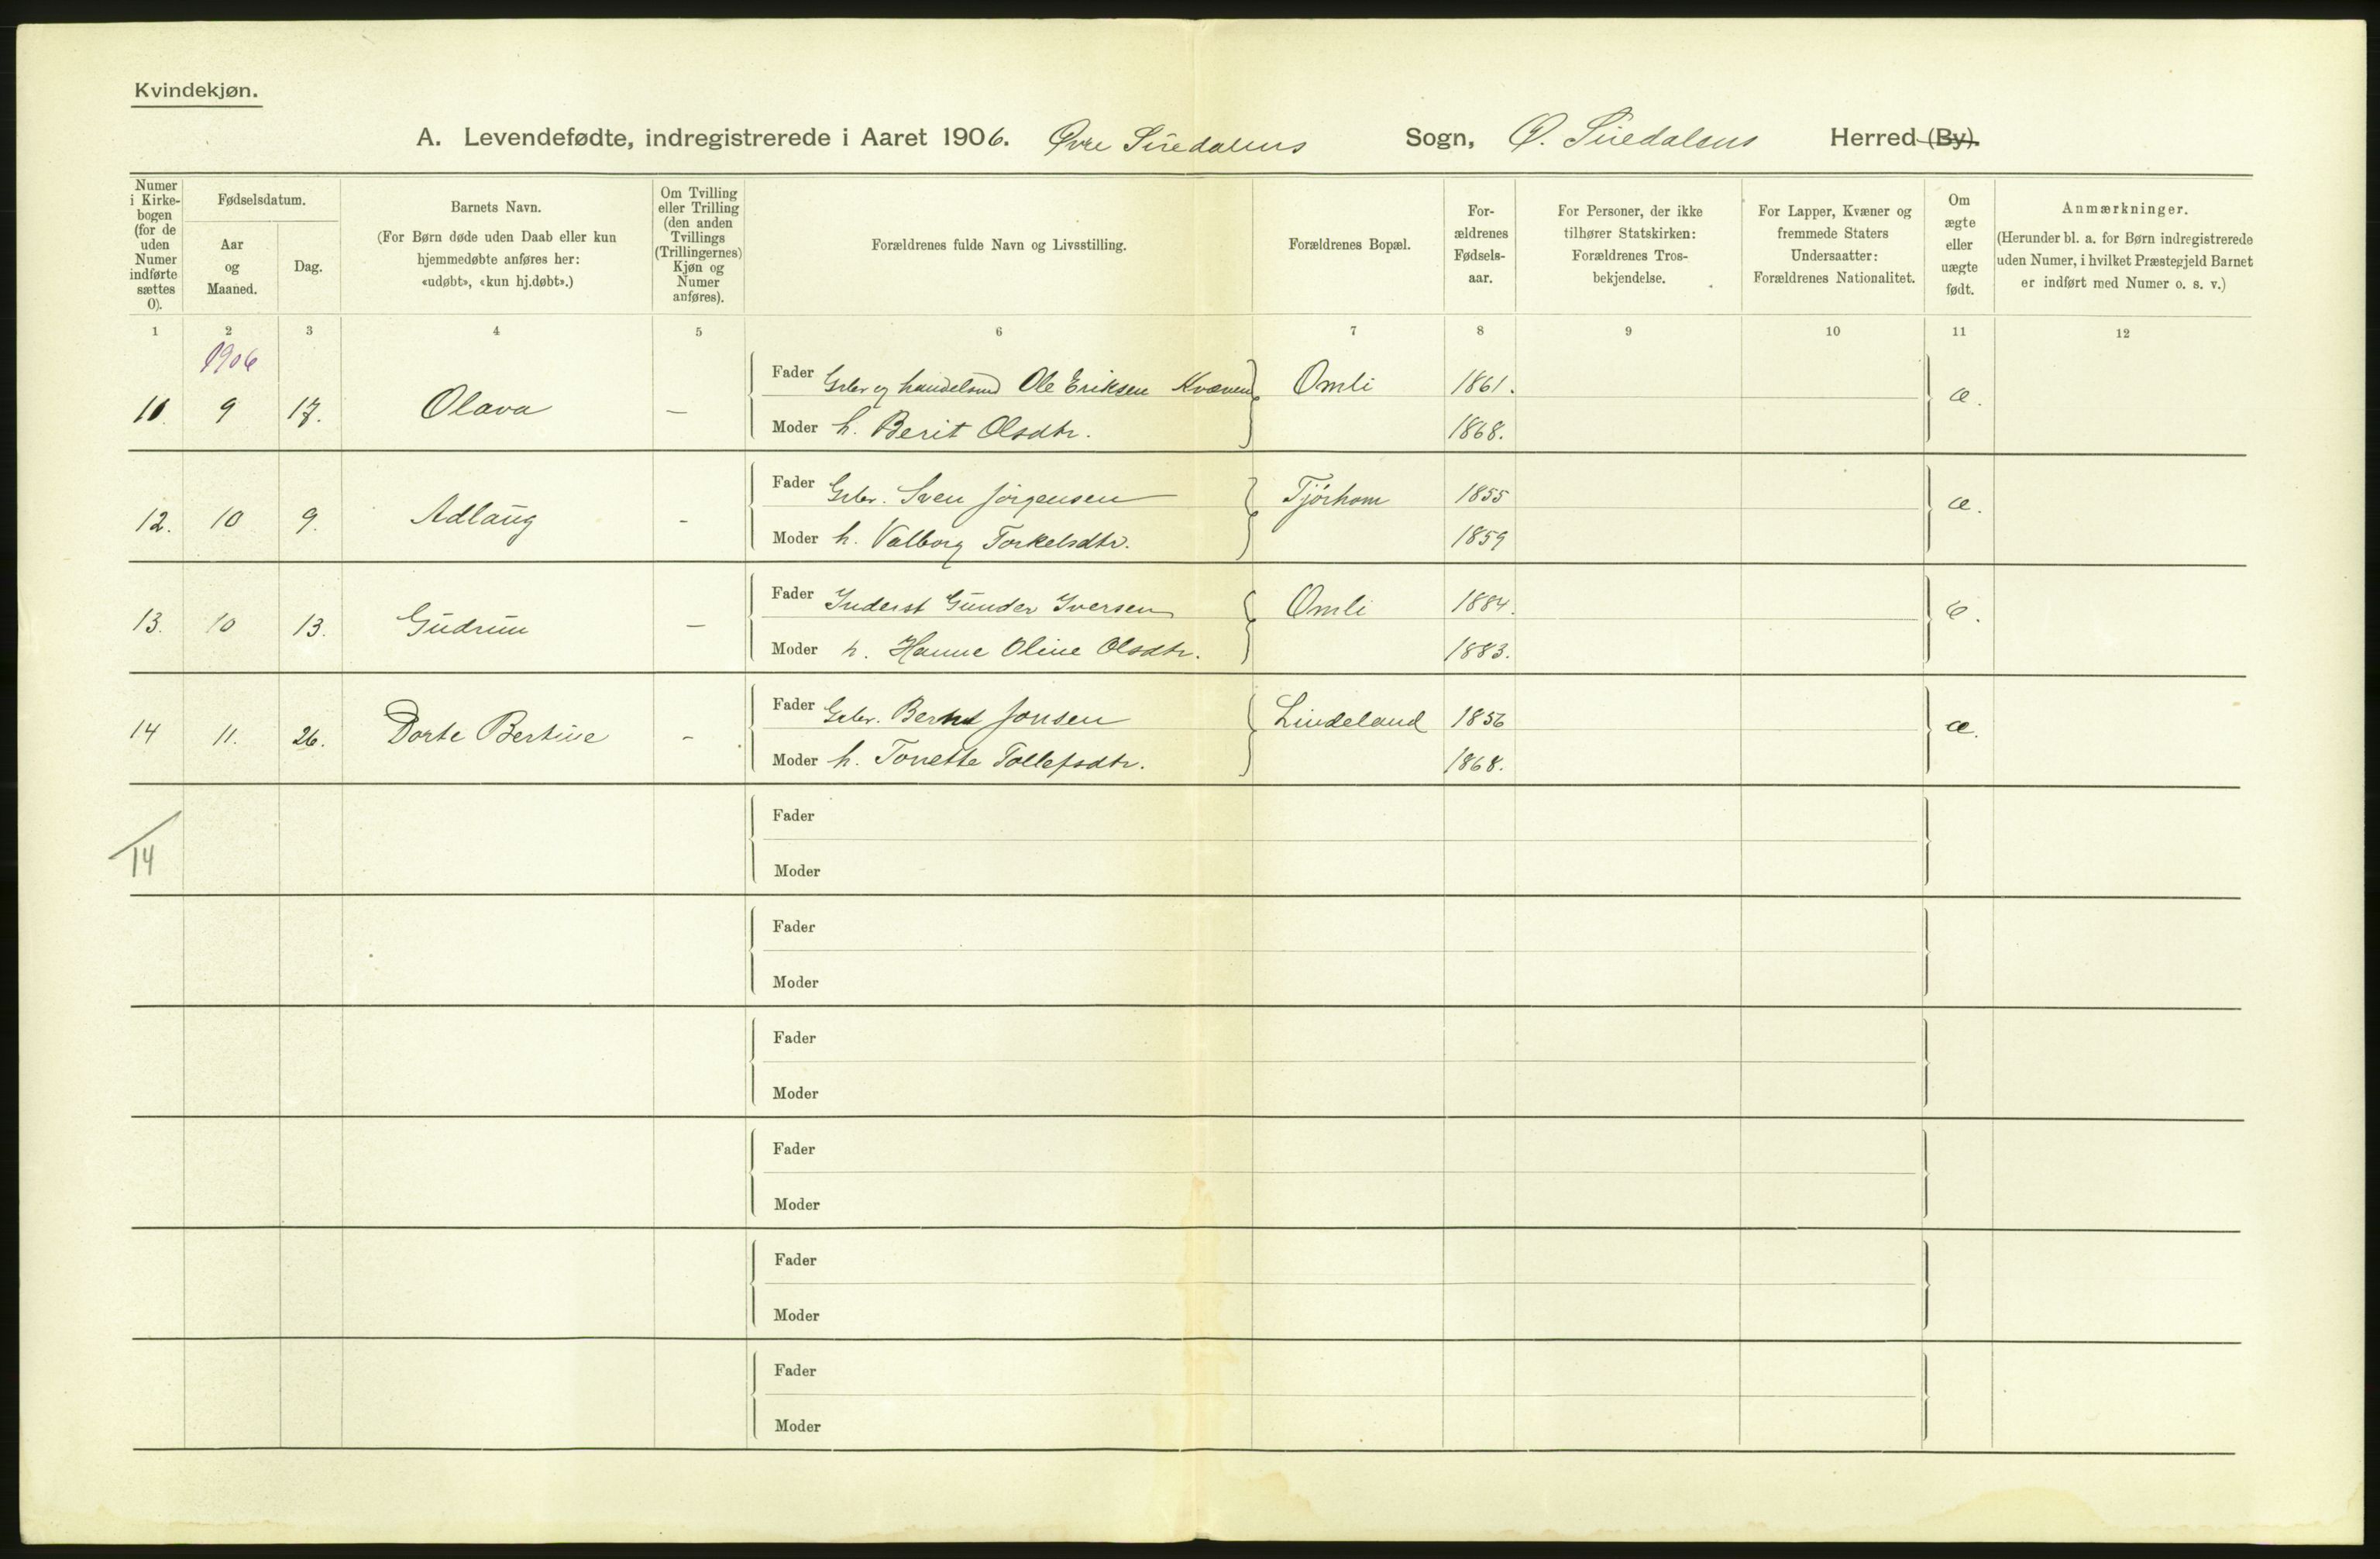 Kvindekjøn.
A. Levendefødte, indregistrerede i Aaret 1906. Øvre Siredalens Sogn, Ø. Siredalens Herred (By).
Numer i Kirkebogen (for de uden Numer indførte sættes 0).
Fødselsdatum.
Aar og Maaned.
Dag.
Barnets Navn.
(For Børn døde uden Daab eller kun
hjemmedøbte anføres her:
«udøbt», «kun hj.døbt».)
Om Tvilling
eller Trilling
(den anden
Tvillings
(Trillingernes)
Kjøn og
Numer
anføres).
Forældrenes fulde Navn og Livsstilling.
Forældrenes Bopæl.
For-
ældrenes
Fødsels-
aar.
For Personer, der ikke
tilhører Statskirken:
Forældrenes Tros-
bekjendelse.
For Lapper, Kvæner og
fremmede Staters
Undersaatter:
Forældrenes Nationalitet.
Om
ægte
eller
uægte
født.
Anmærkninger.
(Herunder bl. a. for Børn indregistrerede
uden Numer, i hvilket Præstegjeld Barnet
er indført med Numer o. s. v.)
1 2 3 4 5 6 7 8 9 10 11 12
1906
Fader Gbr. og handelsmd Ole Eriksen Kvæven Omli 1861.
11. 9 17. Olava — æ.
Moder h. Berit Olsdtr. 1868.
Fader Gbr. Sven Jørgensen Tjörhom 1855
12. 10 9. Adlaug - æ.
Moder h. Valborg Torkelsdtr. 1859
Fader Inderst Gunder Iversen Omli 1884.
13. 10 13. Gudrun — æ.
Moder h. Hanne Oline Olsdtr. 1883.
Fader Gbr. Bernt Jonsen Lindeland 1856
14 11. 26. Dorte Bertine - æ.
Moder h. Tonette Tollefsdtr. 1868.
Fader
14
Moder
Fader
Moder
Fader
Moder
Fader
Moder
Fader
Moder
Fader
Moder